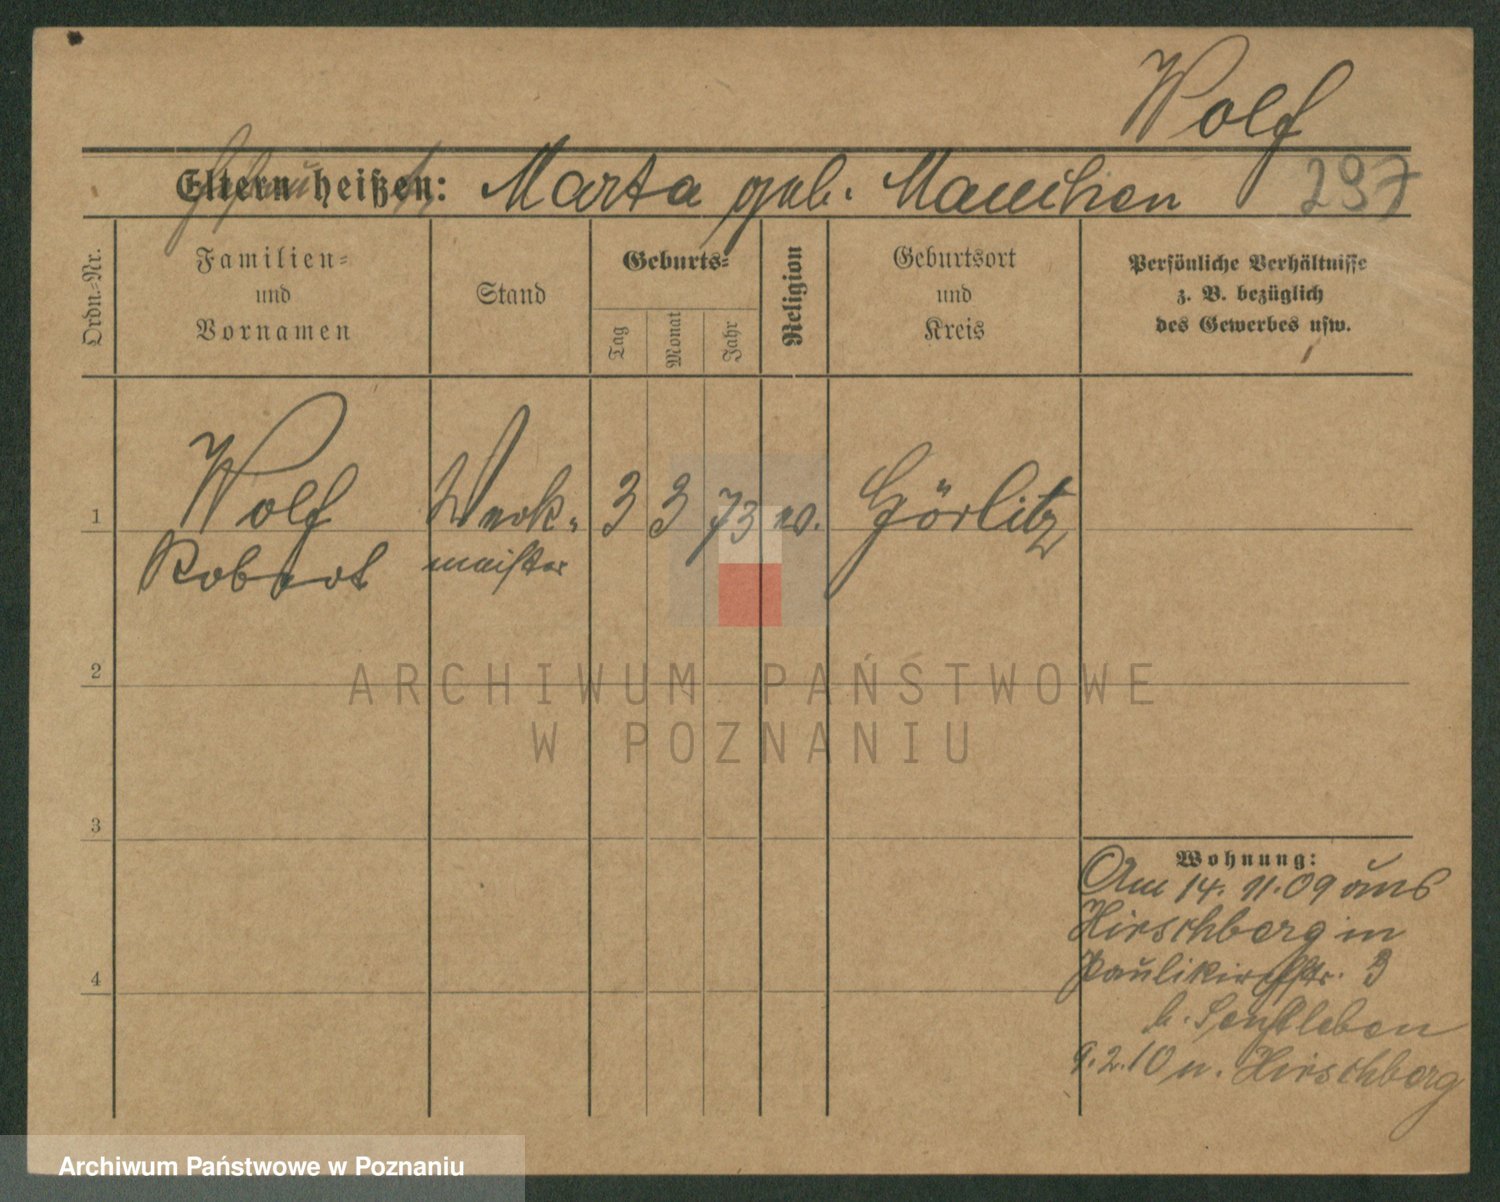 Wolf
Eltern heißen: Marta geb. 297
Ordn.-Nr.
Familien-
und
Vornamen
Stand
Geburts-
Tag
Monat
Jahr
Religion
Geburtsort
und
Kreis
Persönliche Verhältnisse
z. B. bezüglich
des Gewerbes usw.
1
Wolf Werk- 3 3 73 ev. Görlitz
Robert meister
2
ARCHIWUM PAŃSTWOWE
W POZNANIU
3
Wohnung:
Am 14. 11. 09 aus
Hirschberg in
Paulikirchstr. 3
4
b. Senftleben
9. 2. 10 n. Hirschberg
Archiwum Państwowe w Poznaniu